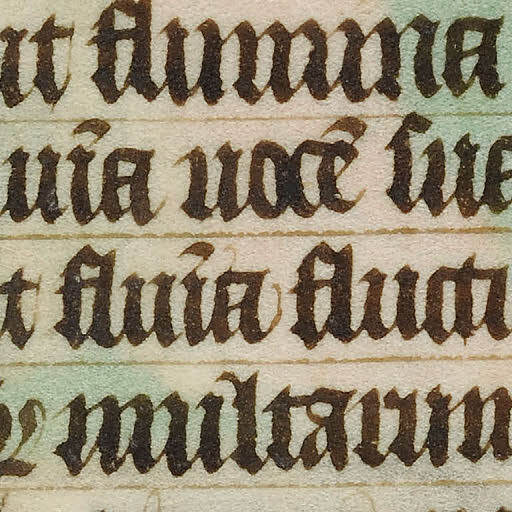 ut flumina
uīa uocē sua
t fluīa flucti
multarum